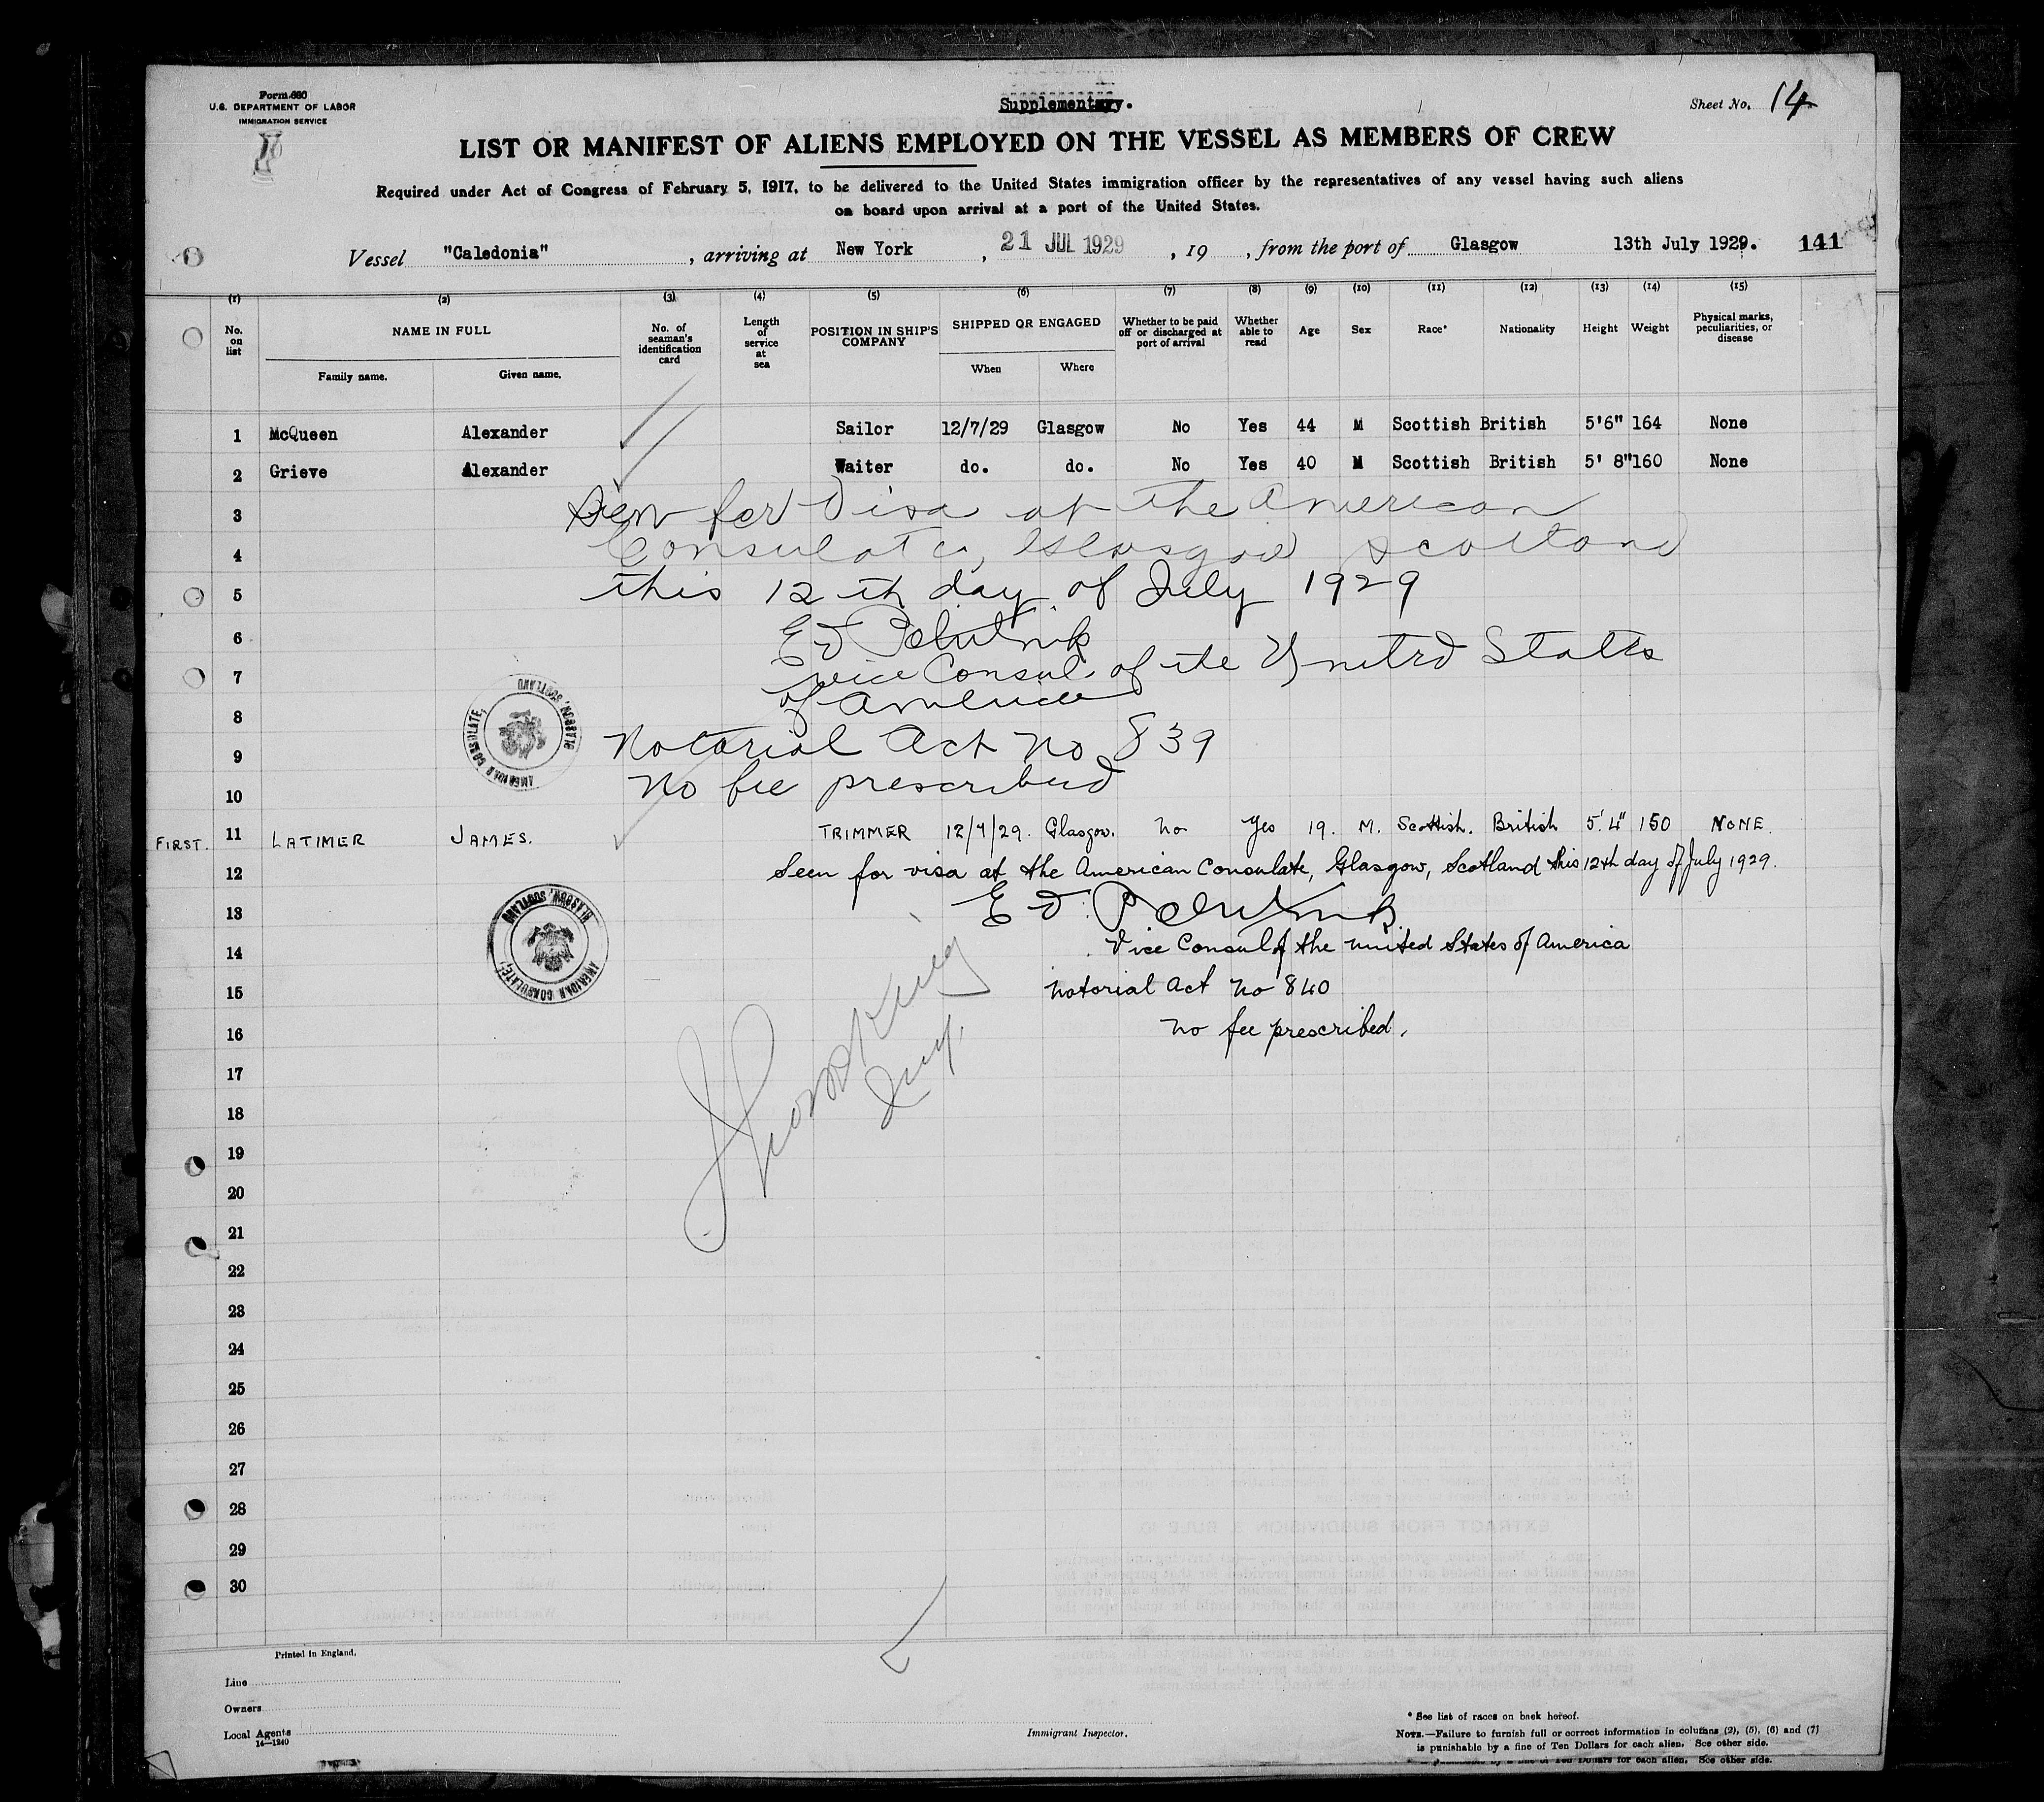 Form 680
U.S. DEPARTMENT OF LABOR
IMMIGRATION SERVICE
Supplementary.
Sheet No. 14
LIST OR MANIFEST OF ALIENS EMPLOYED ON THE VESSEL AS MEMBERS OF CREW
Required under Act of Congress of February 5, 1917, to be delivered to the United States immigration officer by the representatives of any vessel having such aliens
on board upon arrival at a port of the United States.
Vessel "Caledonia", arriving at New York, 21 JUL 1929, 19 , from the port of Glasgow 13th July 1929. 141
(1) (2) (3) (4) (5) (6) (7) (8) (9) (10) (11) (12) (13) (14) (15)
No. on list NAME IN FULL Family name. Given name. No. of seaman's identification card Length of service at sea POSITION IN SHIP'S COMPANY SHIPPED OR ENGAGED When Where Whether to be paid off or discharged at port of arrival Whether able to read Age Sex Race* Nationality Height Weight Physical marks, peculiarities, or disease
1 McQueen Alexander Sailor 12/7/29 Glasgow No Yes 44 M Scottish British 5'6" 164 None
2 Grieve Alexander Waiter do. do. No Yes 40 M Scottish British 5' 8" 160 None
3 Seen for Visa at the American
4 Consulate, Glasgow Scotland
5 this 12th day of July 1929
6
7 Vice Consul of the United States
8 of America
9 Notarial Act No 839
10 No fee prescribed
FIRST. 11 LATIMER JAMES. TRIMMER 12/7/29. Glasgow. No Yes 19. M. Scottish. British 5'.4" 150 NONE.
12 Seen for visa at the American Consulate, Glasgow, Scotland this 12th day of July 1929.
13
14 Vice Consul of the United States of America
15 Notorial Act No 840
16 No fee prescribed.
17
18
19
20
21
22
23
24
25
26
27
28
29
30
AMERICAN CONSULATE, GLASGOW, SCOTLAND
AMERICAN CONSULATE, GLASGOW, SCOTLAND
Printed in England.
Line
Owners
Local Agents
14—1240
Immigrant Inspector.
* See list of races on back hereof.
NOTE.—Failure to furnish full or correct information in columns (2), (5), (6) and (7)
is punishable by a fine of Ten Dollars for each alien. See other side.
for each alien. See other side.